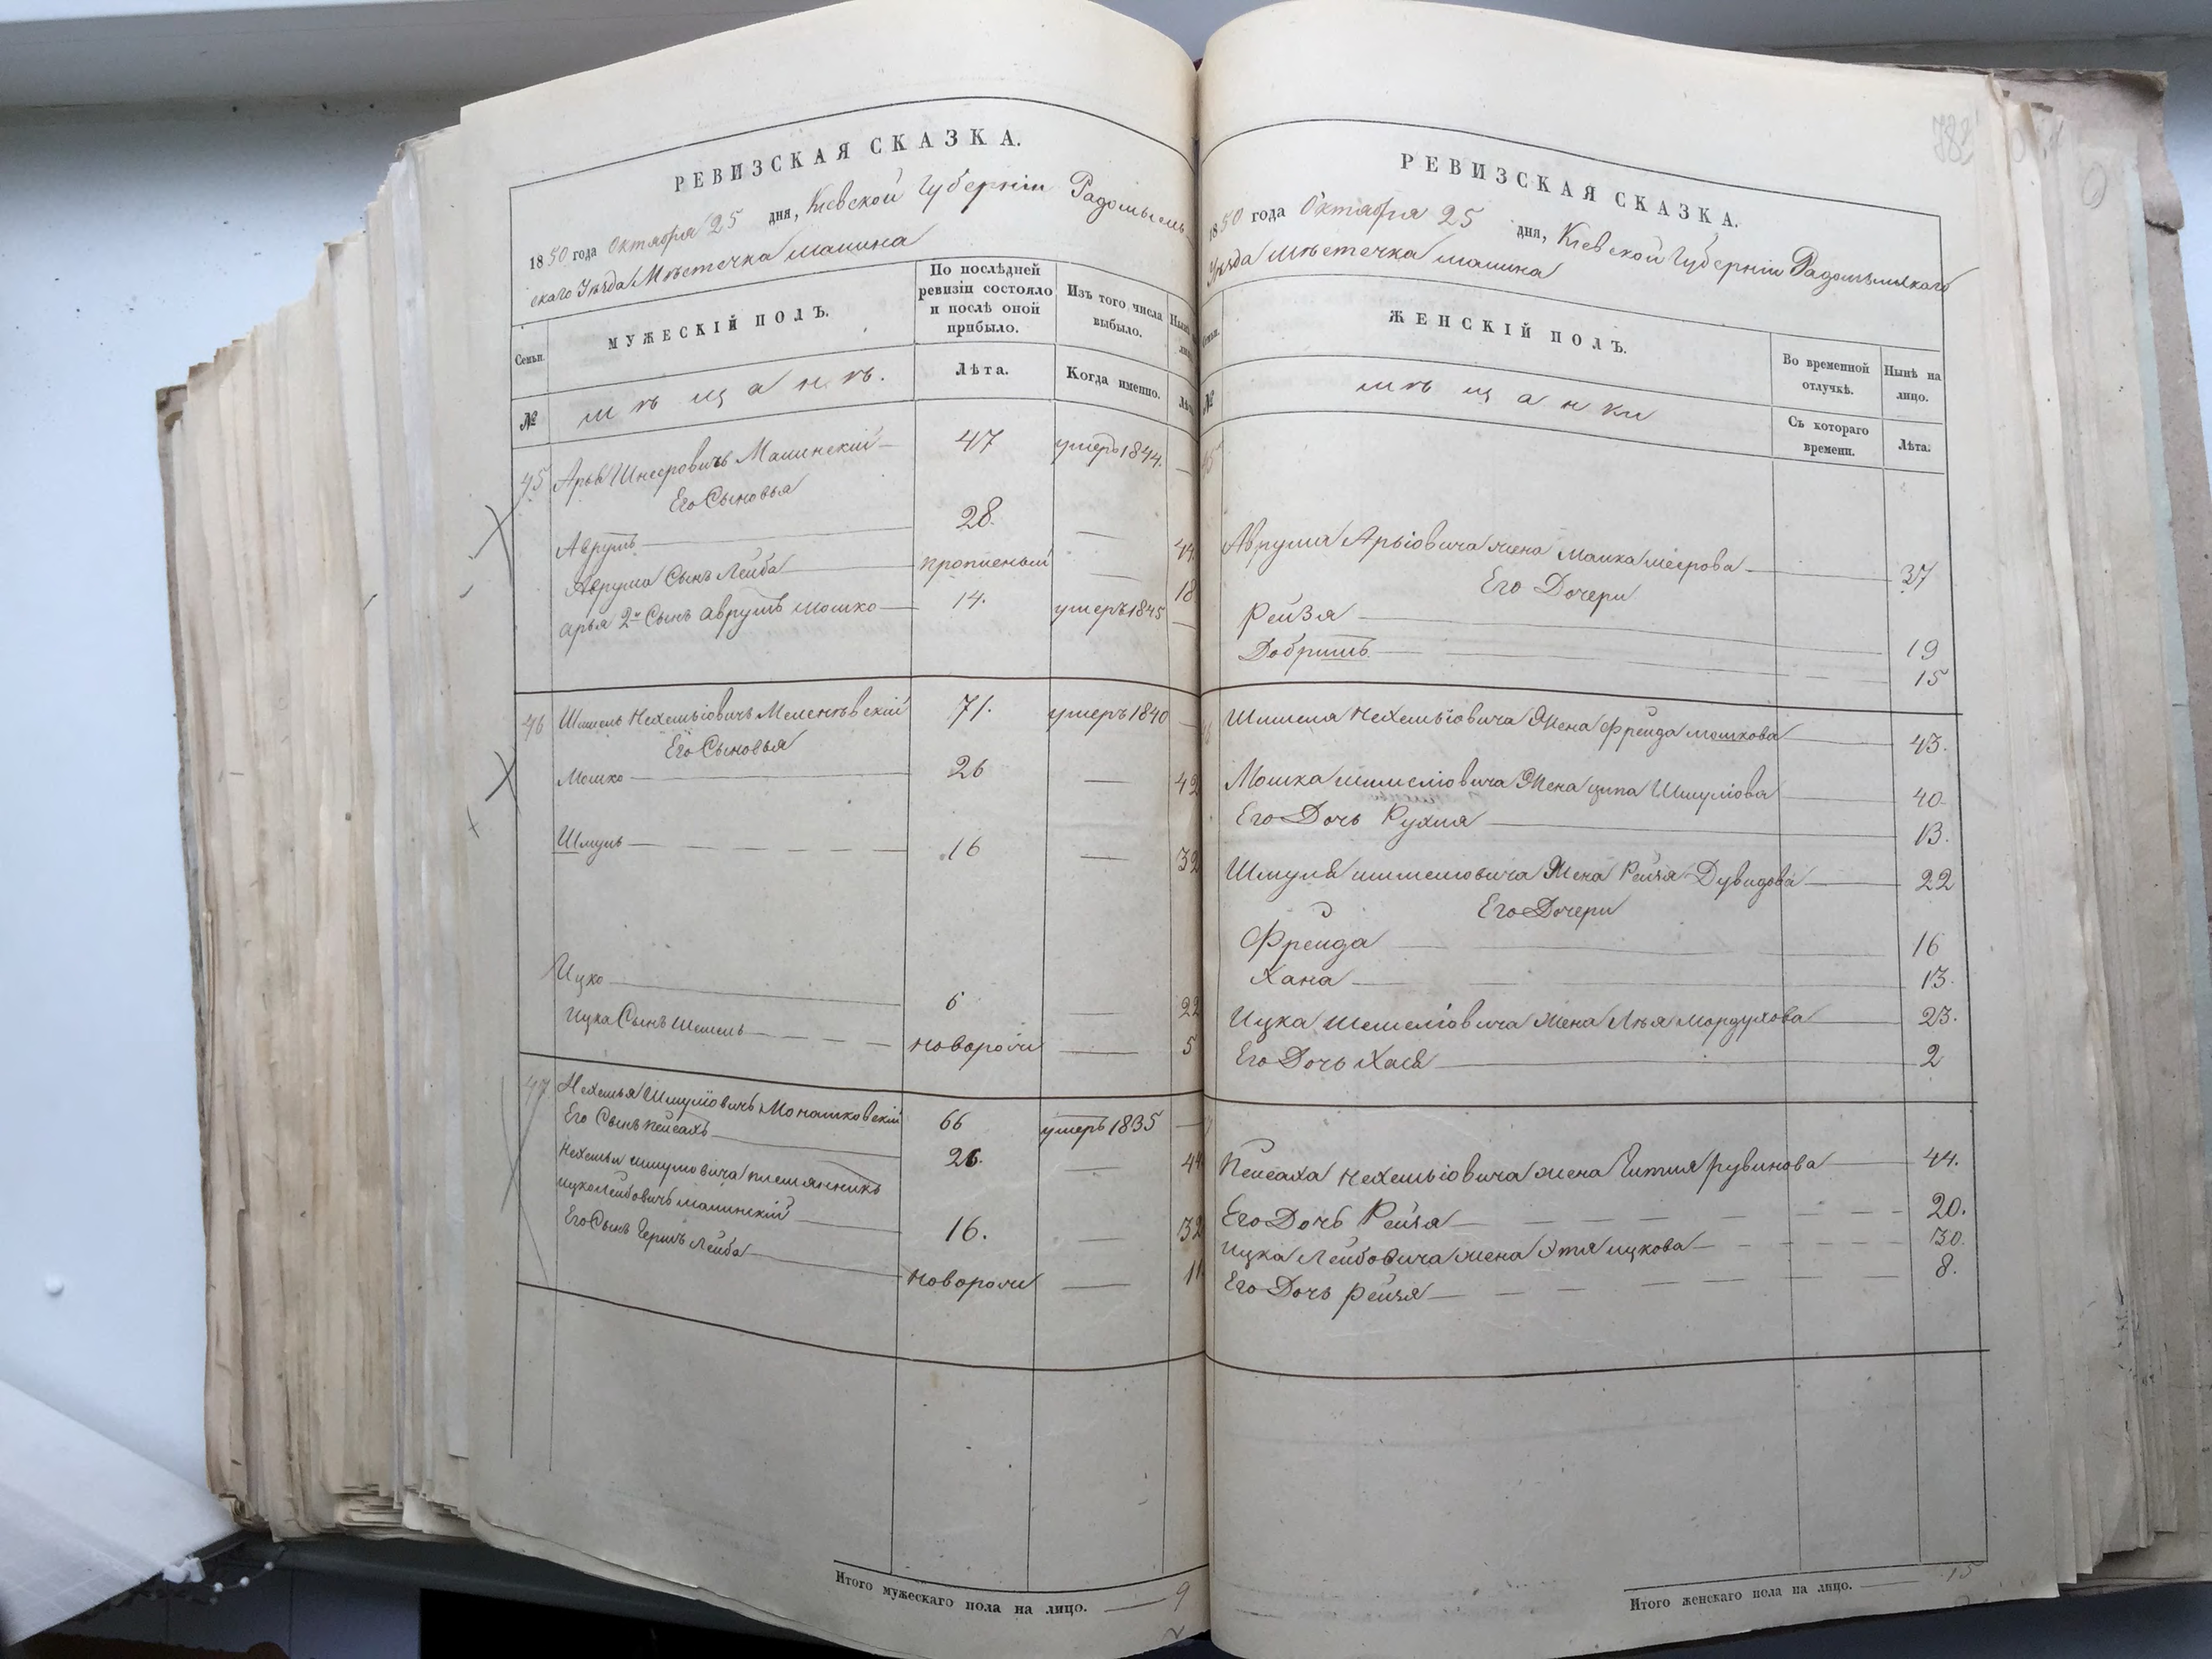 РЕВИЗСКАЯ СКАЗКА.
1850 года Октября 25 дня, Кіевской Губерніи Радомысль-
скаго Уѣзда Мѣстечка Малина
Семьи.
МУЖЕСКІЙ ПОЛЪ.
По послѣдней
ревизіи состояло
и послѣ оной
прибыло.
Изъ того числа
выбыло.
№
мѣщанъ.
Лѣта.
Когда именно.
45 Арья Шнееровичъ Малинскій 47 умеръ 1844.
Его Сыновья
Аврумъ 28. 44
Аврума Сынъ Лейба прописный 18
Арья 2й Сынъ Аврумъ Мошко 14. умеръ 1845
46 Шмель Нехемьіовичъ 71. умеръ 1840
Его Сыновья
Мошко 26 42
Шмуль 16 32
Ицко 6 22
Ицка Сынъ Шмель новорож 5
47 Нехемья Шмуліовичъ Монашковскій 66 умеръ 1835
Его Сынъ Пейсахъ 26. 44
Нехемьи Шмуловича племянникъ
Ицко Лейбовичъ Малинскій 16. 32
Его Сынъ Гершъ Лейба новорож 11
Итого мужескаго пола на лицо. 9
782
РЕВИЗСКАЯ СКАЗКА.
1850 года Октября 25 дня, Кіевской Губерніи Радомысльскаго
Уѣзда Мѣстечка Малина
ЖЕНСКІЙ ПОЛЪ.
Во временной
отлучкѣ.
Нынѣ на
лицо.
№
мѣщанки
Съ котораго
времени.
Лѣта.
Аврума Арьіовича жена Малка Меерова 37
Его Дочери
Рейзя 19
Добришъ 15
Шмеля Нехемьіовича Жена Фрейда Мошкова 43.
Мошка Шмеліовича Жена Ципа Шмуліова 40
Его Дочь Рухля 13.
Шмуля Шмеліовича Жена Рейзя Дувидова 22
Его Дочери
Фрейда 16
Хана 13.
Ицка Шмеліовича Жена Лѣя Мордухова 23.
Его Дочь Хася 2
Пейсаха Нехемьіовича жена Гитля Рувинова 44.
Его Дочь Рейзя 20.
Ицка Лейбовича жена Этя Ицкова 30.
Его Дочь Рейзя 8.
Итого женскаго пола на лицо. 15